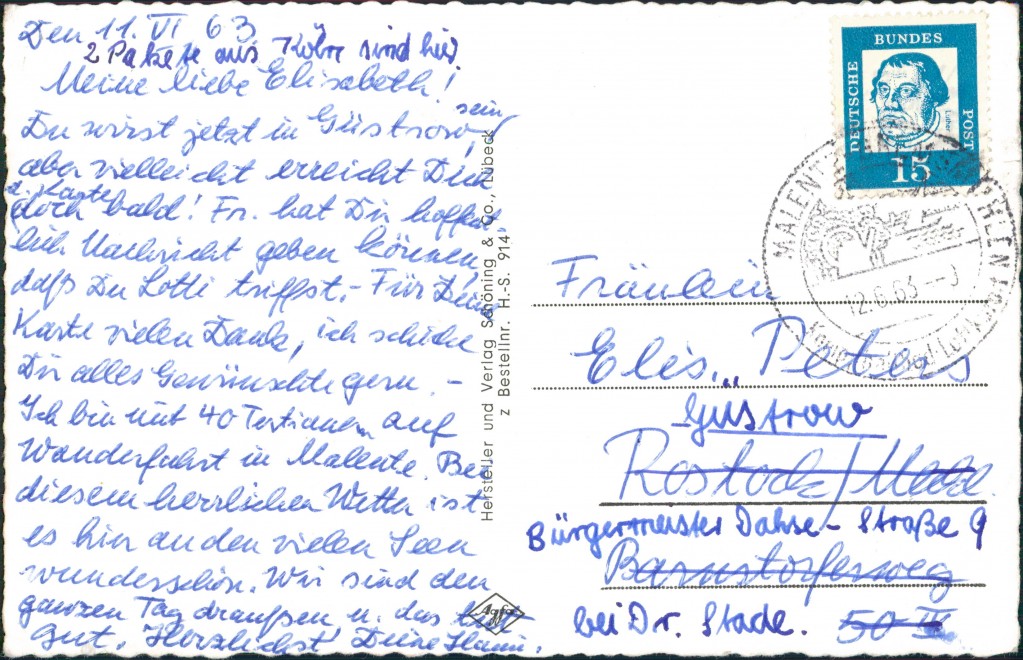 Den 11. VI 63
2 Pakete aus Köln sind hier.
Meine liebe Elisabeth!
Du wirst jetzt in Güstrow sein,
aber vielleicht erreicht Dich
d. Karte
doch bald! Fr. hat Dir hoffent-
lich Nachricht geben können,
daß Du Lotti triffst. - Für Deine
Karte vielen Dank, ich schicke
Dir alles Gewünschte gern. -
Ich bin mit 40 Tertianern auf
Wanderfahrt in Malente. Bei
diesem herrlichen Wetter ist
es hier an den vielen Seen
wunderschön. Wir sind den
ganzen Tag draußen u. das tut
gut. Herzlichst Deine Hanni.
Hersteller und Verlag Schöning & Co., Lübeck
z Bestellnr. H.-S. 914
Agfa
DEUTSCHE
BUNDES
POST
Luther
15
MALENTE
12.6.63
Fräulein
Elis. Peters
Güstrow
Rostock / Meckl.
Bürgermeister Dahse-Straße 9
Barnstorferweg
bei Dr. Stade. 50 II